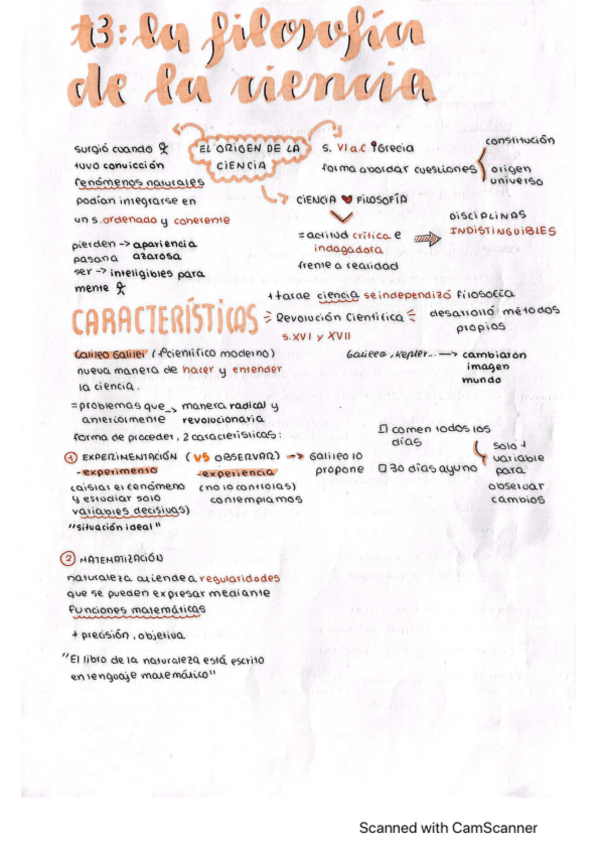 t3: la filosofía
de la ciencia
EL ORIGEN DE LA
CIENCIA
surgió cuando
tuvo convicción
fenómenos naturales
podían integrarse en
un s. ordenado y coherente
pierden -> apariencia
azarosa
pasan a
ser -> inteligibles para
mente
s. VI a.C Grecia
forma abordar cuestiones
constitución
origen
universo
CIENCIA ♥ FILOSOFÍA
= actitud crítica e
indagadora
frente a realidad
DISCIPLINAS
INDISTINGUIBLES
+ tarde ciencia se independizó filosofía
Revolución Científica
s. XVI y XVII
desarrolló métodos
propios
CARACTERÍSTICAS
Galileo Galilei (1º científico moderno)
nueva manera de hacer y entender
la ciencia.
Galileo, Kepler... -> cambiaron
imagen
mundo
= problemas que -> manera radical y
anteriormente revolucionaria
forma de proceder, 2 características:
1 EXPERIMENTACIÓN (VS OBSERVAR) -> Galileo lo
propone
- experimento
(aislar el fenómeno
y estudiar solo
variables decisivas)
"situación ideal"
- experiencia
(no lo controlas)
contemplamos
comen todos los
días
30 días ayuno
solo 1
variable
para
observar
cambios
2 MATEMATIZACIÓN
naturaleza atiende a regularidades
que se pueden expresar mediante
funciones matemáticas
+ precisión, objetiva
"El libro de la naturaleza está escrito
en lenguaje matemático"
Scanned with CamScanner